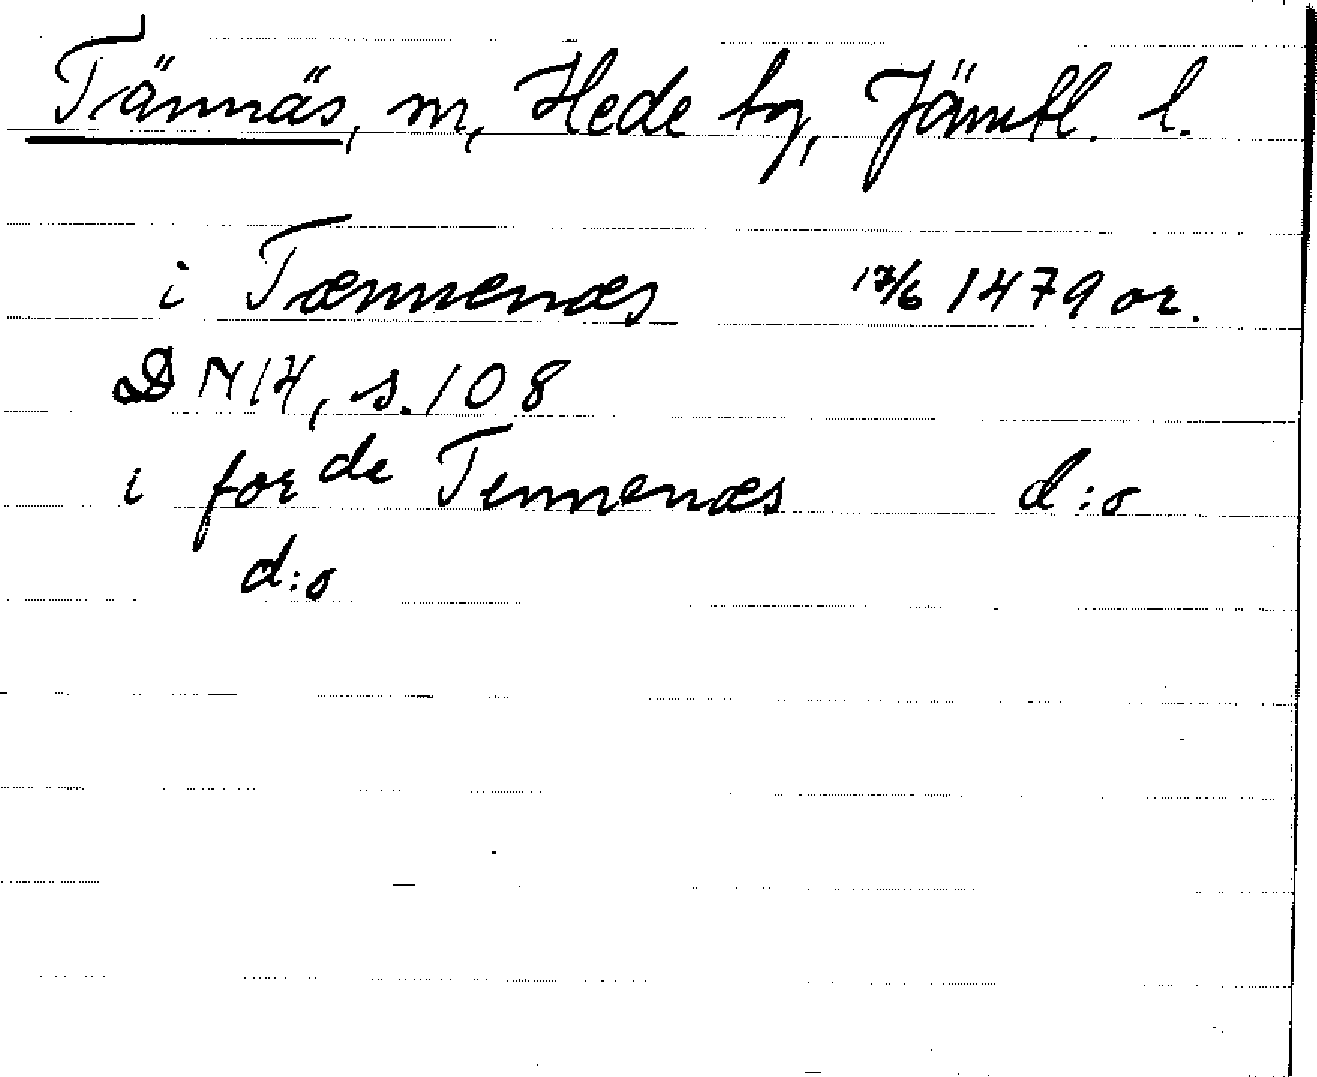 Tännäs, m, Hede tg, Jämtl. l.
i Tænnenæs 17/6 1479 or.
DN 14, s. 108
i for de Tennenæs d:o
d:o